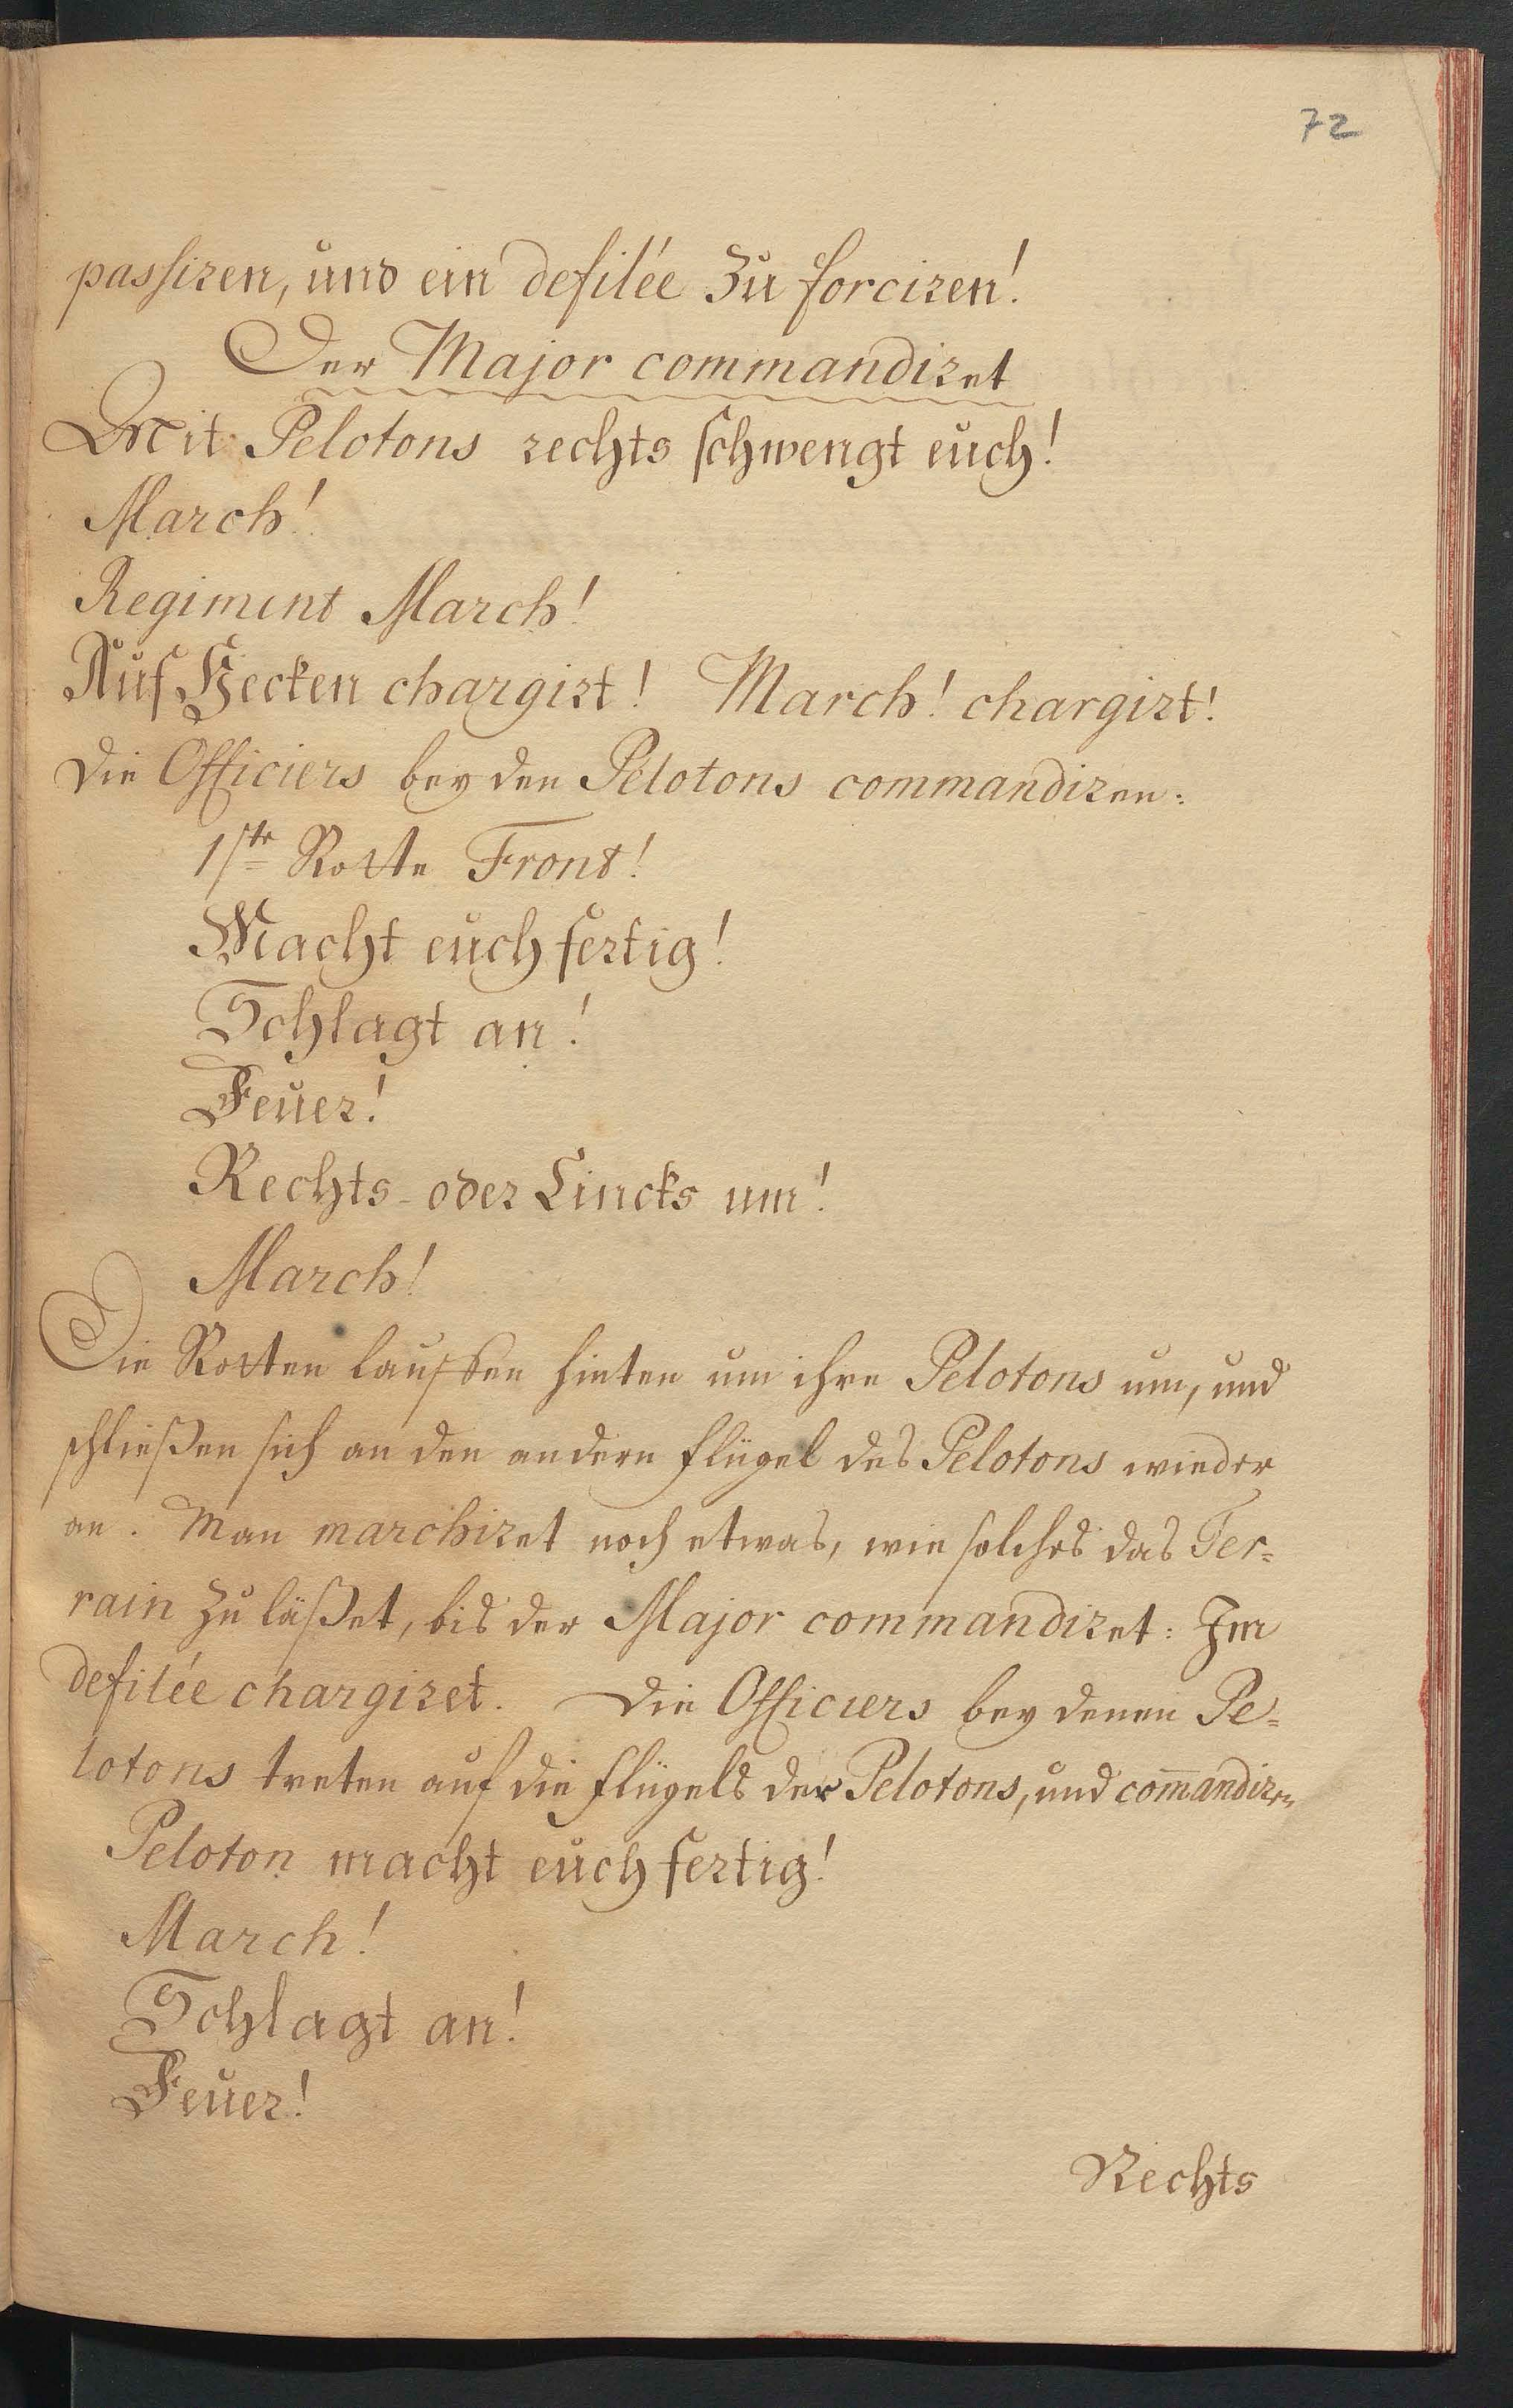 72
passiren, und ein defilée zu forciren!
Der Major commandiret
Mit Pelotons rechts schwengt euch!
March!
Regiment March!
Auf Hecken chargirt! March! chargirt!
Die Officiers bey den Pelotons commandiren:
1ste Rotte Front!
Macht euch fertig!
Schlagt an!
Feuer!
Rechts- oder Lincks um!
March!
Die Rotten lauffen hinten um ihre Pelotons um, und
schließen sich an den andern Flügel des Pelotons wieder
an. Man marchiret noch etwas, wie solches das Ter=
rain zu läßet, bis der Major commandiret: Im
defilée chargiret. Die Officiers bey denen Pe=
lotons treten auf die Flügels der Pelotons, und com̄andiren
Peloton macht euch fertig!
March!
Schlagt an!
Feuer!
Rechts